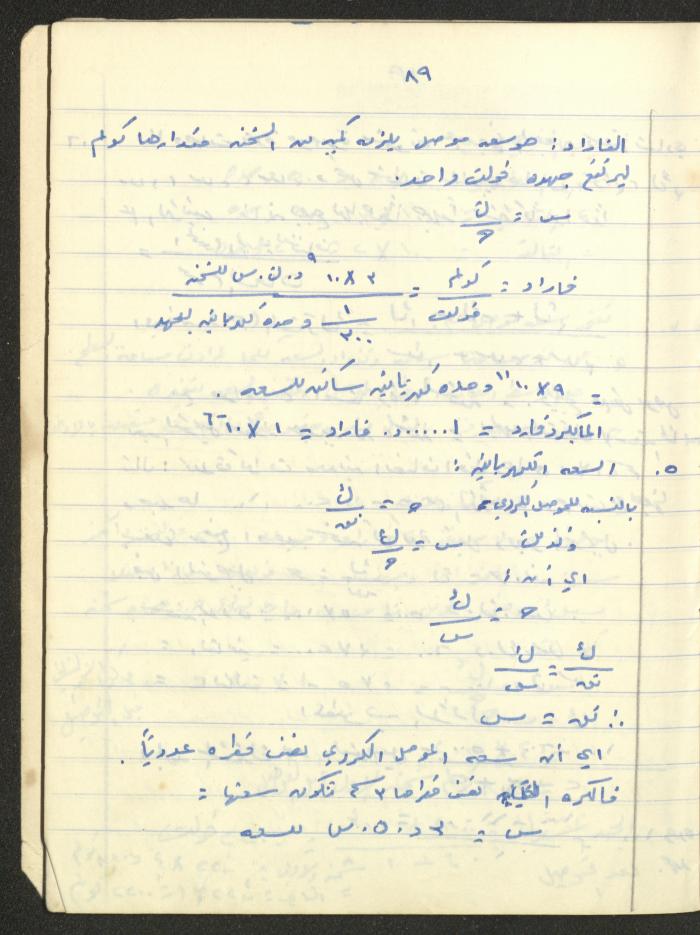 ٨٩
الفاراد: هو سعه موصل يلزمه كميه من الشحنه مقدارها كولم
ليرتفع جهده فولت واحد.
س = ك / جـ
فاراد = كولم / فولت = ٣ × ١٠^٩ و. ك. س للشحنه / ١/٣٠٠ وحده كهربائيه للجهد
= ٩ × ١٠^١١ وحده كهربائيه ساكنه للسعه.
المايكروفارد = ٠٠٠٠٠١,. فاراد = ١ × ١٠^-٦
٥. السعه الكهربائيه:
بالنسبه للموصل الكروي = جـ = ك / نق
وكذلك س = ك / جـ
اي أن:
جـ = ك / س
ك / نق = ك / س
∴ نق = س
اي أن سعه الموصل الكروي نصف قطره عددياً.
فالكره نصف قطرها ٣ سم تكون سعتها =
س = ٣ و. ك. س للسعه